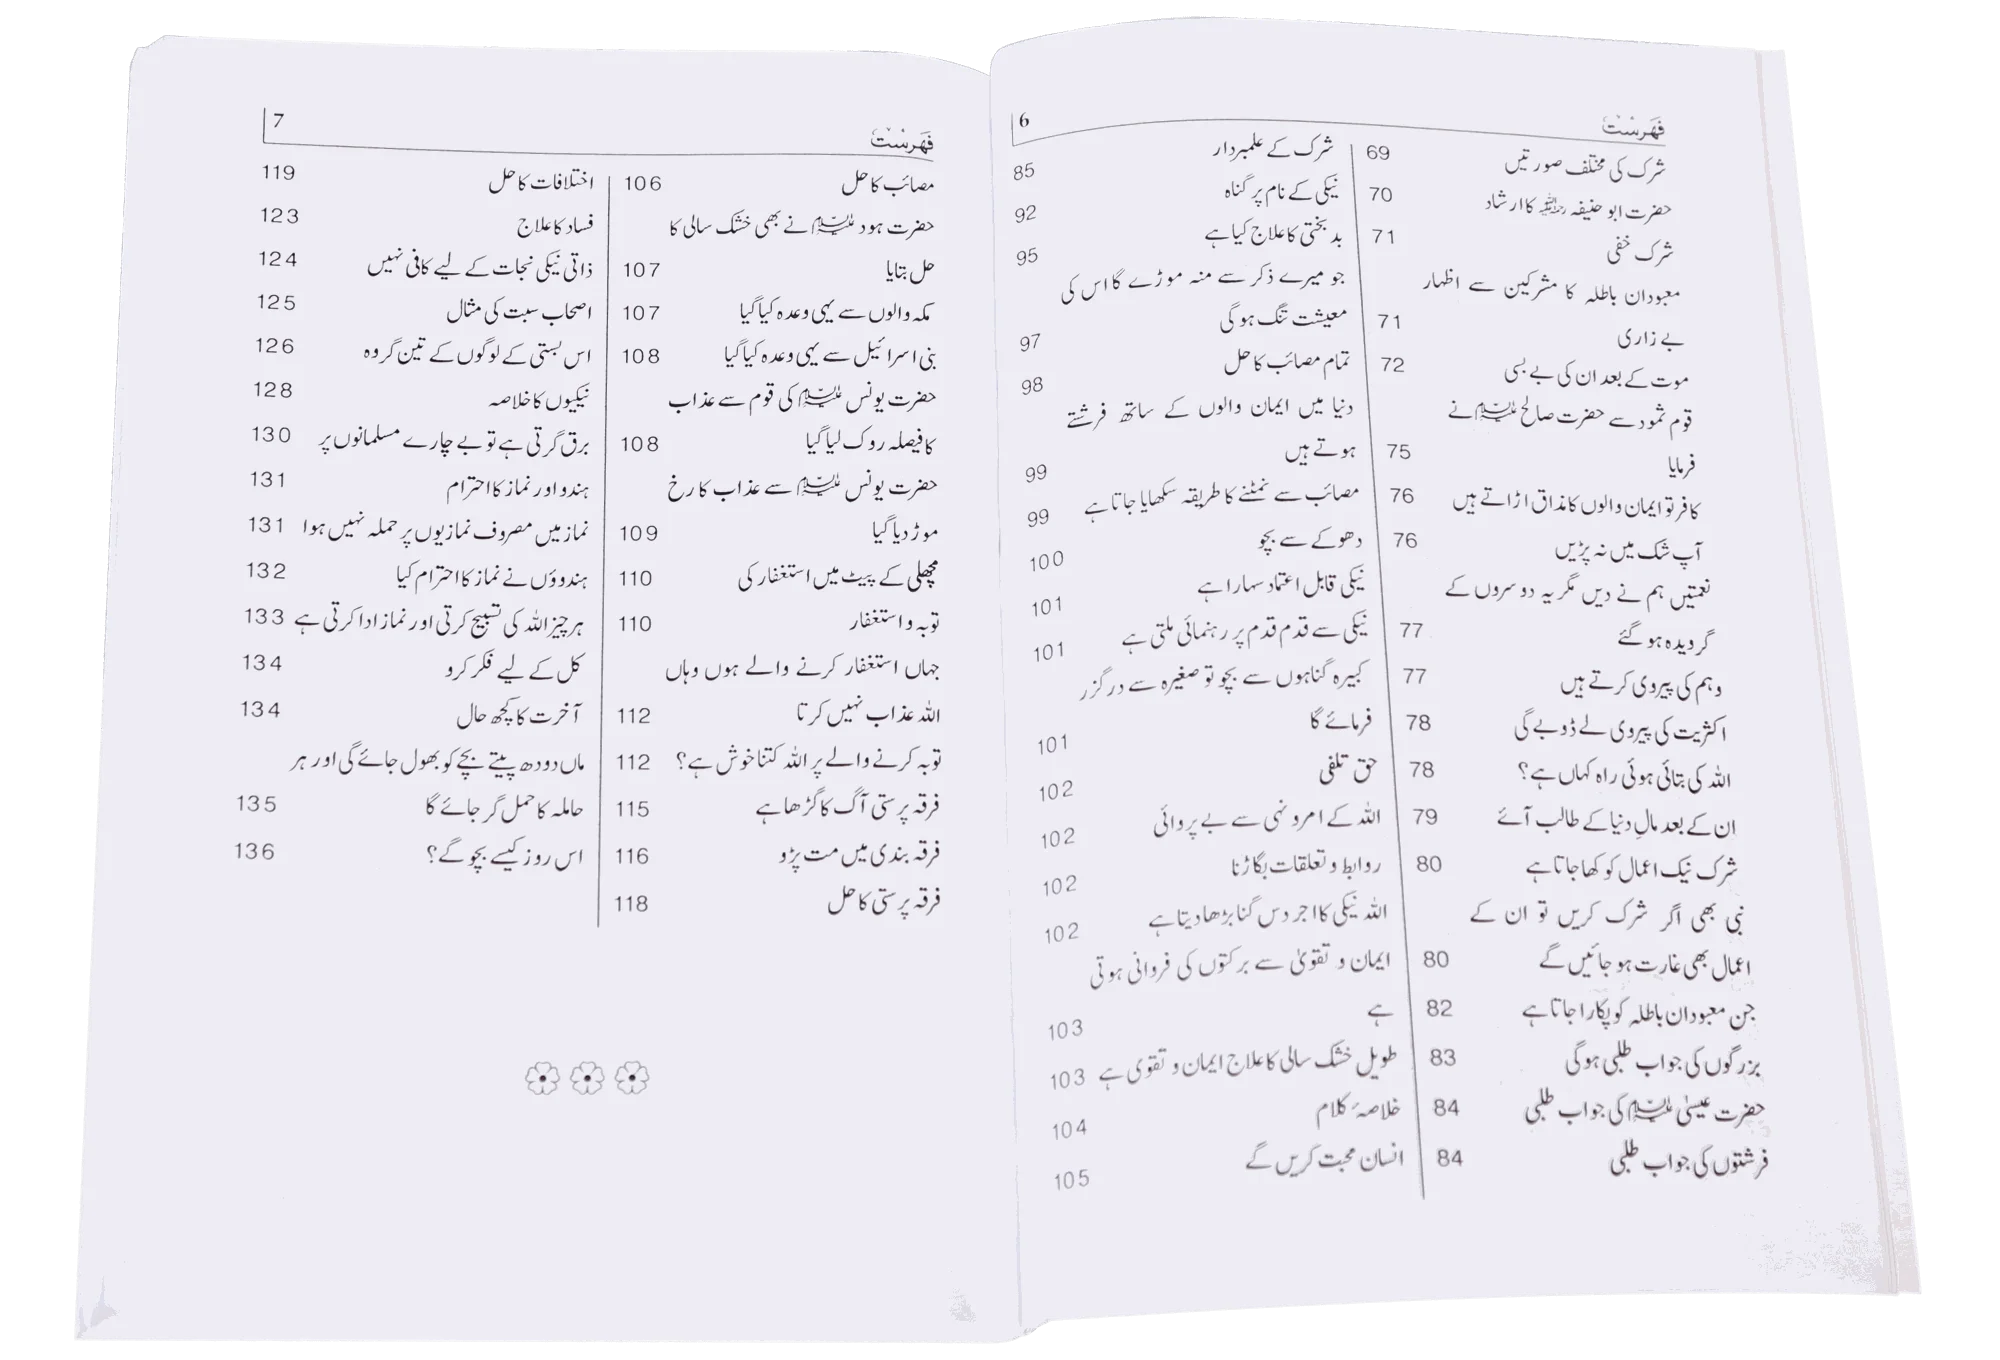 6
فہرست
شرک کی مختلف صورتیں 69
حضرت ابو حنیفہ رحمہ اللہ کا ارشاد 70
شرک خفی 71
معبودان باطلہ کا مشرکین سے اظہار
بے زاری 71
موت کے بعد ان کی بے بسی 72
قوم ثمود سے حضرت صالح علیہ السلام نے
فرمایا 75
کافر تو ایمان والوں کا مذاق اڑاتے ہیں 76
آپ شک میں نہ پڑیں 76
نعمتیں ہم نے دیں مگر یہ دوسروں کے
گرویدہ ہو گئے 77
وہم کی پیروی کرتے ہیں 77
اکثریت کی پیروی لے ڈوبے گی 78
اللہ کی بتائی ہوئی راہ کہاں ہے؟ 78
ان کے بعد مالِ دنیا کے طالب آئے 79
شرک نیک اعمال کو کھا جاتا ہے 80
نبی بھی اگر شرک کریں تو ان کے
اعمال بھی غارت ہو جائیں گے 80
جن معبودان باطلہ کو پکارا جاتا ہے 82
بزرگوں کی جواب طلبی ہوگی 83
حضرت عیسیٰ علیہ السلام کی جواب طلبی 84
فرشتوں کی جواب طلبی 84
شرک کے علمبردار 85
نیکی کے نام پر گناہ 92
بد بختی کا علاج کیا ہے 95
جو میرے ذکر سے منہ موڑے گا اس کی
معیشت تنگ ہو گی 97
تمام مصائب کا حل 98
دنیا میں ایمان والوں کے ساتھ فرشتے
ہوتے ہیں 99
مصائب سے نمٹنے کا طریقہ سکھایا جاتا ہے 99
دھوکے سے بچو 100
نیکی قابل اعتماد سہارا ہے 101
نیکی سے قدم قدم پر رہنمائی ملتی ہے 101
کبیرہ گناہوں سے بچو تو صغیرہ سے درگزر
فرمائے گا 101
حق تلفی 102
اللہ کے امر و نہی سے بے پروائی 102
روابط و تعلقات بگاڑنا 102
اللہ نیکی کا اجر دس گنا بڑھا دیتا ہے 102
ایمان و تقویٰ سے برکتوں کی فروانی ہوتی
ہے 103
طویل خشک سالی کا علاج ایمان و تقویٰ ہے 103
خلاصۂ کلام 104
انسان محبت کریں گے 105
7
فہرست
مصائب کا حل 106
حضرت ہود علیہ السلام نے بھی خشک سالی کا
حل بتایا 107
مکہ والوں سے یہی وعدہ کیا گیا 107
بنی اسرائیل سے یہی وعدہ کیا گیا 108
حضرت یونس علیہ السلام کی قوم سے عذاب
کا فیصلہ روک لیا گیا 108
حضرت یونس علیہ السلام سے عذاب کا رخ
موڑ دیا گیا 109
مچھلی کے پیٹ میں استغفار کی 110
توبہ و استغفار 110
جہاں استغفار کرنے والے ہوں وہاں
اللہ عذاب نہیں کرتا 112
توبہ کرنے والے پر اللہ کتنا خوش ہے؟ 112
فرقہ پرستی آگ کا گڑھا ہے 115
فرقہ بندی میں مت پڑو 116
فرقہ پرستی کا حل 118
اختلافات کا حل 119
فساد کا علاج 123
ذاتی نیکی نجات کے لیے کافی نہیں 124
اصحاب سبت کی مثال 125
اس بستی کے لوگوں کے تین گروہ 126
نیکیوں کا خلاصہ 128
برق گرتی ہے تو بے چارے مسلمانوں پر 130
ہندو اور نماز کا احترام 131
نماز میں مصروف نمازیوں پر حملہ نہیں ہوا 131
ہندوؤں نے نماز کا احترام کیا 132
ہر چیز اللہ کی تسبیح کرتی اور نماز ادا کرتی ہے 133
کل کے لیے فکر کرو 134
آخرت کا کچھ حال 134
ماں دودھ پیتے بچے کو بھول جائے گی اور ہر
حاملہ کا حمل گر جائے گا 135
اس روز کیسے بچو گے؟ 136